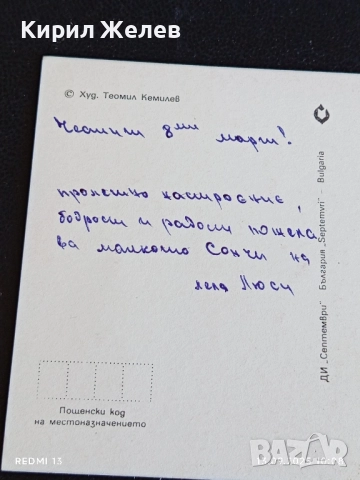 Кирил Желев
© Худ. Теомил Кемилев
Честит 8ми март!
пролетно настроение,
бодрост и радост пожела
ва малкото Сончи на
леля Люси
ДИ „Септември" - България „Septemvri" - Bulgaria
Пощенски код
на местоназначението
REDMI 13
БАZАР